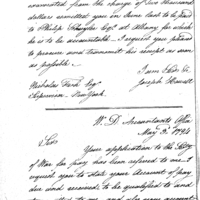 warranted from the charge of two thousand
dollars remitted you in June last to be paid
to Philip Schuyler Esqr at Albany for which
he is to be accountable. I request you please
to procure and transmit his receipt as soon
as possible.
I am Sir &c
Joseph Howell
Nicholas Fish Esqr
Supervisor New York
W. D. Accountants Office
May 2d 1794
Sir
Your application to the Secy
of War for pay has been referred to me. I
request you to state your Account of pay
due and received, to be qualified to and